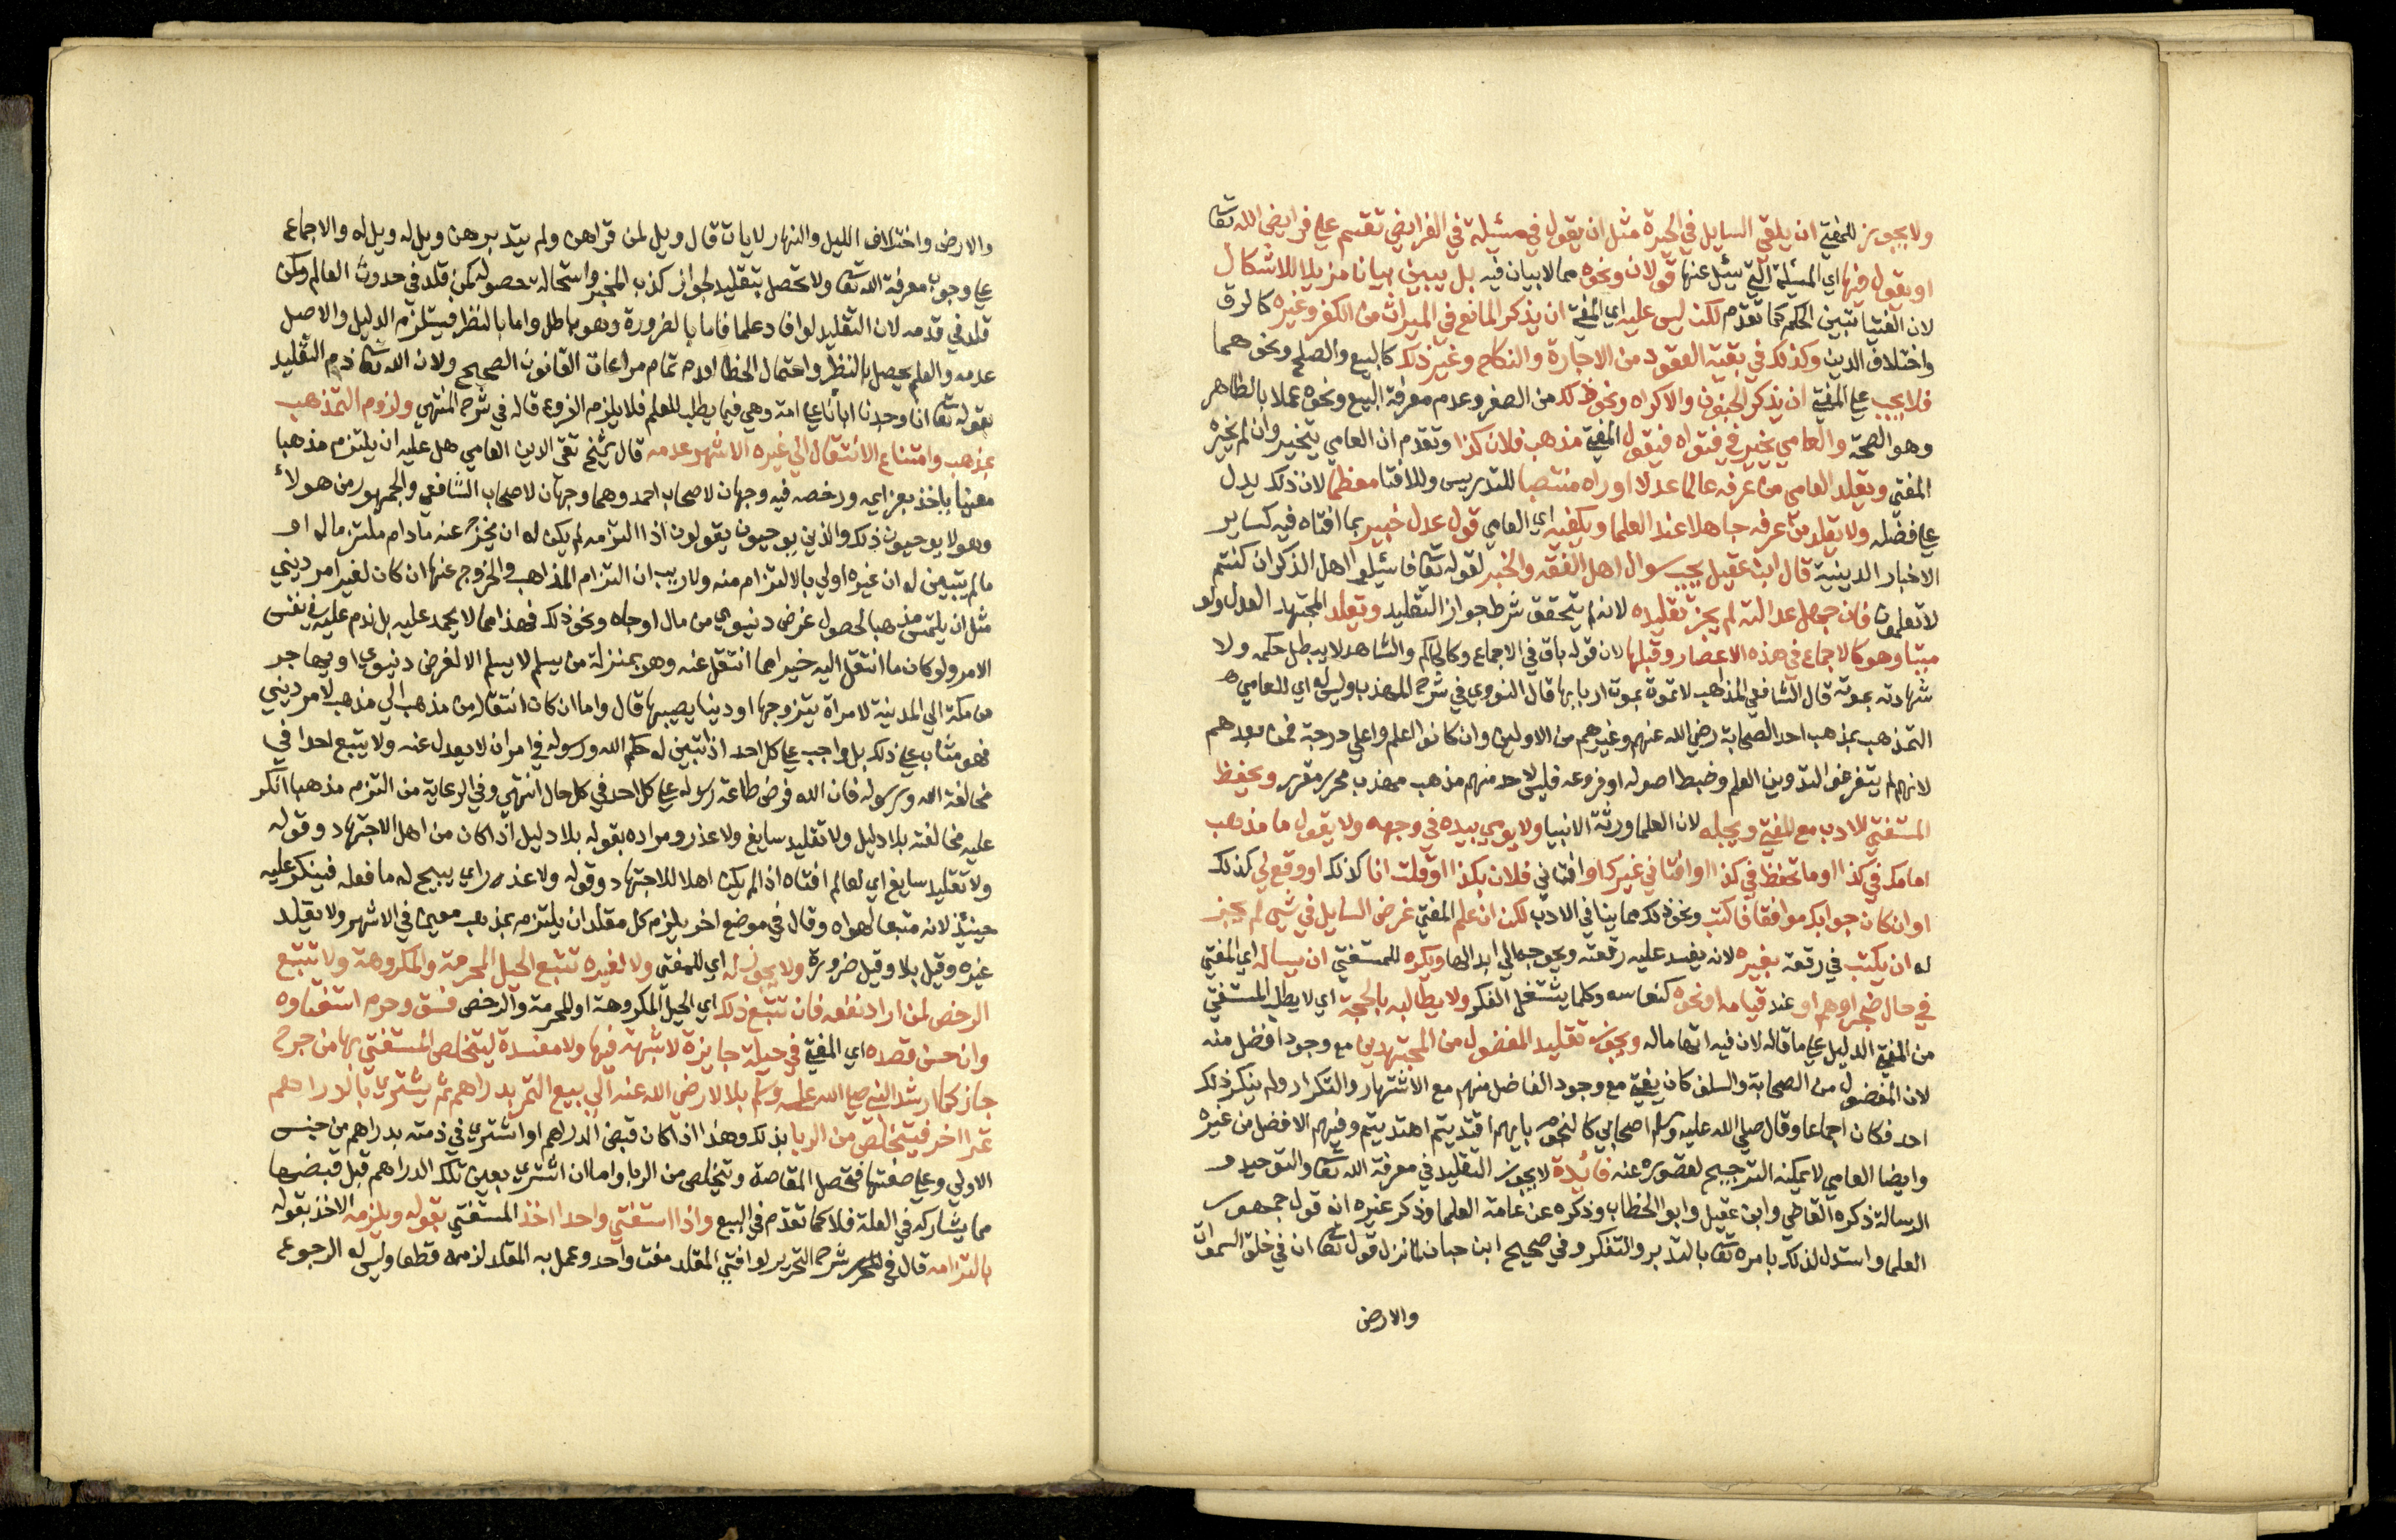 ولا يجوز للمفتي ان يلقي السايل في الحيرة مثل ان يقول في مسئلة في الفرايض تقسم علي فرايض الله تعالى
او يقول فيها اي المسئلة التي سئل عنها قولان ونحوه مما لا بيان فيه بل يبين بيانا مزيلا للاشكال
لان الفتيا تبيين الحكم كما تقدم لكن ليس عليه اي المفتي ان يذكر المانع في الميراث من الكفر وغيره كالرق
واختلاف الدين وكذلك في بقية العقود من الاجارة والنكاح وغير ذلك كالبيع والصلح ونحوهما
فلا يجب علي المفتي ان يذكر الجنون والاكراه ونحو ذلك من الصغر وعدم معرفة البيع ونحوه عملا بالظاهر
وهو الصحة والعامي يخير في فتواه فيقول المفتي مذهب فلان كذا وتقدم ان العامي يتخير وان لم يخيره
المفتي ويقلد العامي من عرفه عالما عدلا او راه منتصبا للتدريس وللافتا معظما لان ذلك يدل
علي فضله ولا يقلد من عرفه جاهلا عند العلما ويكفيه اي العامي قول عدل خبير بما افتاه فيه كساير
الاخبار الدينية قال ابن عقيل يجب سوال اهل الفقه والخبر لقوله تعالى فاسئلوا اهل الذكر ان كنتم
لا تعلمون فان جهل عدالته لم يجز تقليده لانه لم يتحقق شرط جواز التقليد ويقلد المجتهد العدل ولو
ميتا وهو كالاجماع في هذه الاعصار وقبلها لان قوله باق في الاجماع وكالحاكم والشاهد لا يبطل حكمه ولا
شهادته بموته قال الشافعي المذاهب لا تموت بموت اربابها قال النووي في شرح المهذب وليس له اي للعامي
التمذهب بمذهب احد الصحابة رضي الله عنهم وغيرهم من الاولين وان كانوا اعلم واعلي درجة ممن بعدهم
لانهم لم يتفرغوا لتدوين العلم وضبط اصوله او فروعه فليس لاحد منهم مذهب مهذب محرر مقرر ويحفظ
المستفتي الادب مع المفتي ويجله لان العلما ورثة الانبيا ولا يومي بيده في وجهه ولا يقول ما مذهب
امامك في كذا او ما تحفظ في كذا او افتاني غيرك او افتاني فلان بكذا او قلت انا كذلك او وقع لي كذلك
او ان كان جوابك موافقا فاكتب ونحو ذلك مما ينافي الادب لكن ان علم المفتي غرض السايل في شي لم يجز
له ان يكتب في رقعة بغيره لانه يفسد عليه رقعته ويحوجه الي ابدالها ويكره للمستفتي ان يساله اي المفتي
في حال ضجر او هم او عند قيامه او نحوه كنعاسه وكلما يشتغل الفكر ولا يطالبه بالحجة اي لا يطلب المستفتي
من المفتي الدليل علي ما قاله لان فيه اتهاما له ويجوز تقليد المفضول من المجتهدين مع وجود افضل منه
لان المفضول من الصحابة والسلف كان يفتي مع وجود الفاضل منهم مع الاشتهار والتكرار ولم ينكر ذلك
احد فكان اجماعا وقال صلي الله عليه وسلم اصحابي كالنجوم بايهم اقتديتم اهتديتم وفيهم الافضل من غيره
وايضا العامي لا يمكنه الترجيح لقصوره عنه فائدة لا يجوز التقليد في معرفة الله تعالى والتوحيد و
الرسالة ذكره القاضي وابن عقيل وابو الخطاب وذكره عن عامة العلما وذكر غيره انه قول جمهور
العلما واستدل لذلك بامره تعالى بالتدبر والتفكر وفي صحيح ابن حبان لما نزل قوله تعالى ان في خلق السموات
والارض
والارض واختلاف الليل والنهار لايات قال ويل لمن قراهن ولم يتدبرهن ويل له ويل له والاجماع
علي وجوب معرفة الله تعالى ولا تحصل بتقليد لجواز كذب المخبر واستحالة حصوله كمن قلد في حدوث العالم وكمن
قلد في قدمه لان التقليد لو افاد علما فاما بالضرورة وهو باطل واما بالنظر فيستلزم الدليل والاصل
عدمه والعلم يحصل بالنظر واحتمال الخطا لعدم تمام مراعات القانون الصحيح ولان الله تعالى ذم التقليد
بقوله تعالى انا وجدنا اباءنا علي امة وهي فيما يطلب للعلم فلا يلزم الفروع قاله في شرح المنتهي ولزوم التمذهب
بمذهب وامتناع الانتقال الي غيره الاشهر عدمه قال الشيخ تقي الدين العامي هل عليه ان يلتزم مذهبا
معينا ياخذ بعزايمه ورخصه فيه وجهان لاصحاب احمد وهما وجهان لاصحاب الشافعي والجمهور من هولاء
وهولا يوجبون ذلك والذين يوجبون يقولون اذا التزمه لم يكن له ان يخرج عنه ما دام ملتزما له او
ما لم يتبين له ان غيره اولي بالالتزام منه ولا ريب ان التزام المذاهب والخروج عنها ان كان لغير امر ديني
مثل ان يلتمس مذهبا لحصول غرض دنيوي من مال او جاه ونحو ذلك فهذا مما لا يحمد عليه بل يذم عليه في نفس
الامر ولو كان ما انتقل اليه خيرا مما انتقل عنه وهو بمنزلة من يسلم لا يسلم الا لغرض دنيوي او يهاجر
من مكة الي المدينة لامراة يتزوجها او دنيا يصيبها قال واما ان كان انتقاله من مذهب الي مذهب لامر ديني
فهو مثاب علي ذلك بل واجب علي كل احد اذا تبين له حكم الله ورسوله في امر ان لا يعدل عنه ولا يتبع احدا في
مخالفة الله ورسوله فان الله فرض طاعة رسوله علي كل احد في كل حال انتهي وفي الرعاية من التزم مذهبا انكر
عليه مخالفته بلا دليل ولا تقليد سايغ ولا عذر ومراده بقوله بلا دليل اذا كان من اهل الاجتهاد وقوله
ولا تقليد سايغ اي لعالم افتاه اذا لم يكن اهلا للاجتهاد وقوله ولا عذر اي يبيح له ما فعله فينكر عليه
حينئذ لانه متبعا لهواه وقال في موضع اخر يلزم كل مقلد ان يلتزم بمذهب معين في الاشهر ولا يقلد
غيره وقيل بلا وقيل ضرورة ولا يجوز له اي للمفتي ولا لغيره تتبع الحيل المحرمة والمكروهة ولا تتبع
الرخص لمن اراد نفعه فان تتبع ذلك اي الحيل المكروهة او المحرمة والرخص فسق وحرم استفتاوه
وان حسن قصده اي المفتي في حيلة جايزة لا شبهة فيها ولا مفسدة ليتخلص المستفتي بها من حرج
جاز كما ارشد النبي صلي الله عليه وسلم بلالا رضي الله عنه الي بيع التمر بدراهم ثم يشتري بالدراهم
تمرا اخر فيتخلص من الربا بذلك وهذا اذا كان قبض الدراهم او اشتري في ذمته بدراهم من جنس
الاولي وعلي صفتها فتحصل المقاصة ويتخلص من الربا واما ان اشتري بعين تلك الدراهم قبل قبضها
مما يشاركه في العلة فلا كما تقدم في البيع واذا استفتي واحدا اخذ المستفتي بقوله ويلزمه الاخذ بقوله
بالتزامه قال في شرح التحرير لو افتي المقلد مفت واحد وعمل به المقلد لزمه قطعا وليس له الرجوع